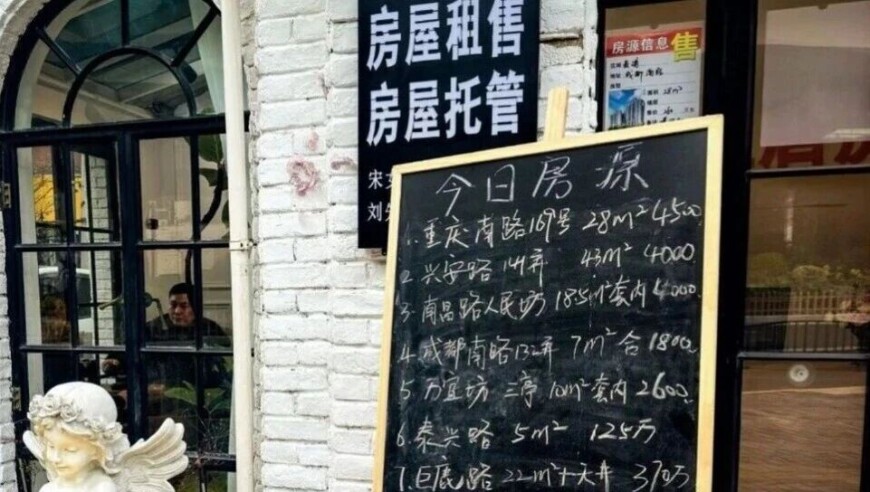 房屋租售
房屋托管
宋
刘
房源信息
售
28m²
今日房源
1.重庆南路169号 28m² 4500
2.兴安路141弄 43m² 4000
3.南昌路人民坊 18.5m²套内 4000
4.成都南路132弄 7m² 合 1800
5.万宜坊 三亭 10m²套内 2600
6.泰兴路 5m² 125万
7.巨鹿路 22m²+天井 370万